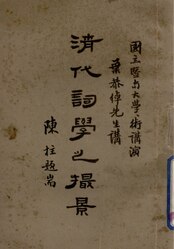 國立暨南大學學術講演
葉恭綽先生講
清代詞學之撮影
陳柱題耑